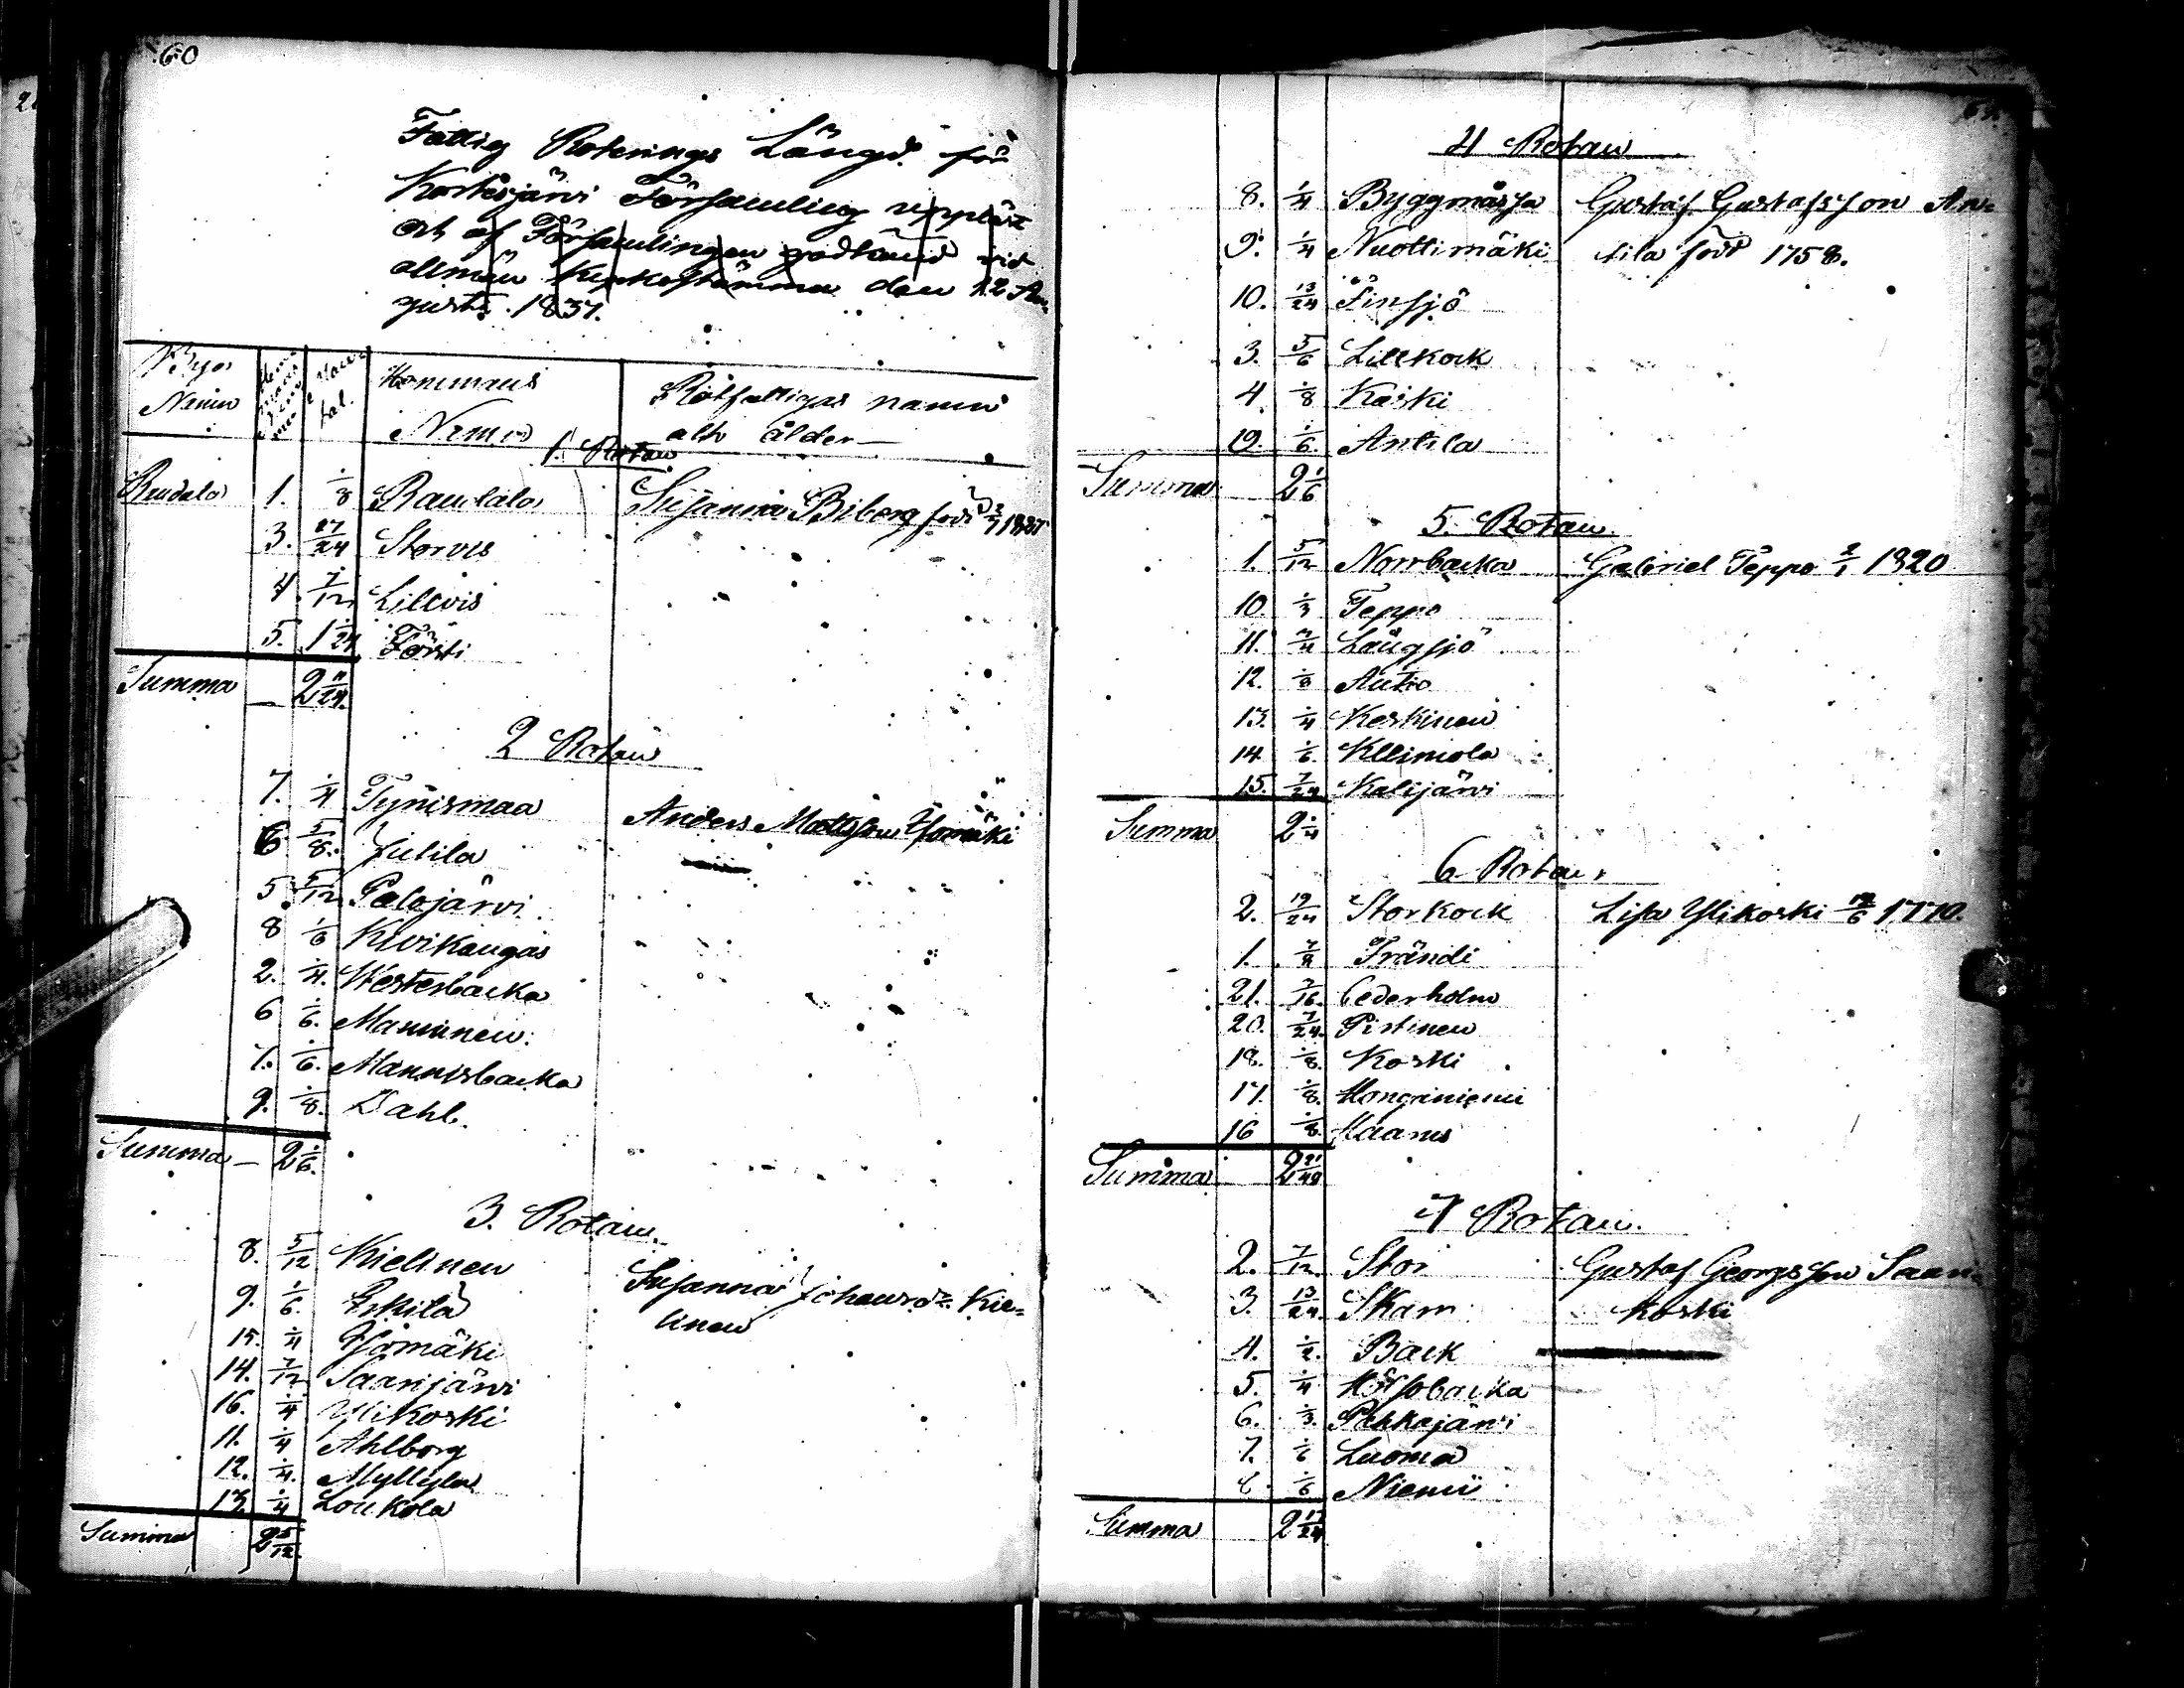 60
Fattig Roterings Längd för
Kortesjärvi Församling uppläst
och af Församlingen godkänd vid
allmän Kyrkostämma den 12 Au-
gusti 1837.
Byar Namn
Mantal.
Hemmans Namn
Rotfattigas namn
och ålder
1. Rotan
Rudala 1. 1/8 Raudala Susanna Biberg född 2/7 1827
3. 17/24 Storvis
4. 7/12 Lillvis
5. 1 1/24 Försti
Summa — 2 11/24.
2 Rotan
7. 1/4 Tynismaa Anders Mattsson Isomäki
6 5/8. Jutila
5. 5/12 Palojärvi
8 1/6 Kivikangas
2. 1/4. Westerbacka
6 1/6. Manninen
7. 1/6. Mannisbacka
9. 1/8. Dahl.
Summa — 2 1/6.
3. Rotan.
8. 5/12 Kielinen Susanna Johansdr. Kie-
9. 1/6. Erkilä linen
15. 1/4 Isomäki
14. 7/12 Saarijärvi
16. 1/4 Ylikoski
11. 1/4 Ahlborg
12. 1/4. Myllylä
13. 1/4 Loukola
Summa 2 5/12.
4 Rotan
8. 1/4 Byggmässa Gustaf Gustafsson An-
9. 1/4 Nuottimäki tila född 1758.
10. 13/24 Finsjö
3. 5/6 Lillkock
4. 1/8 Kaski
19. 1/6. Antila
Summa 2 1/6
5. Rotan
1. 5/12 Norrbacka Gabriel Teppo 2/1 1820
10. 1/3 Teppo
11. 3/4 Långsjö
12. 1/8 Autio
13. 1/4 Keskinen
14 1/6. Kliimola
15. 7/24 Kalijärvi
Summa 2 1/4
6 Rotan.
2. 19/24 Storkock Lisa Ylikoski 12/6 1770.
1. Frändi
21. 7/16. Cederholm
20. 7/24. Pistinen
18. 1/8. Koski
17. 1/8. Honganiemi
16 1/8. Haams
Summa 2 21/48
7 Rotan.
2. 7/12. Stor Gustaf Georgsson Saari-
3. 13/24. Skam koski
4. 1/2. Back
5. 1/4
6. 1/3. Pahkajärvi
7. 1/6 Luoma
8. 1/6 Niemi
Summa 2 13/24